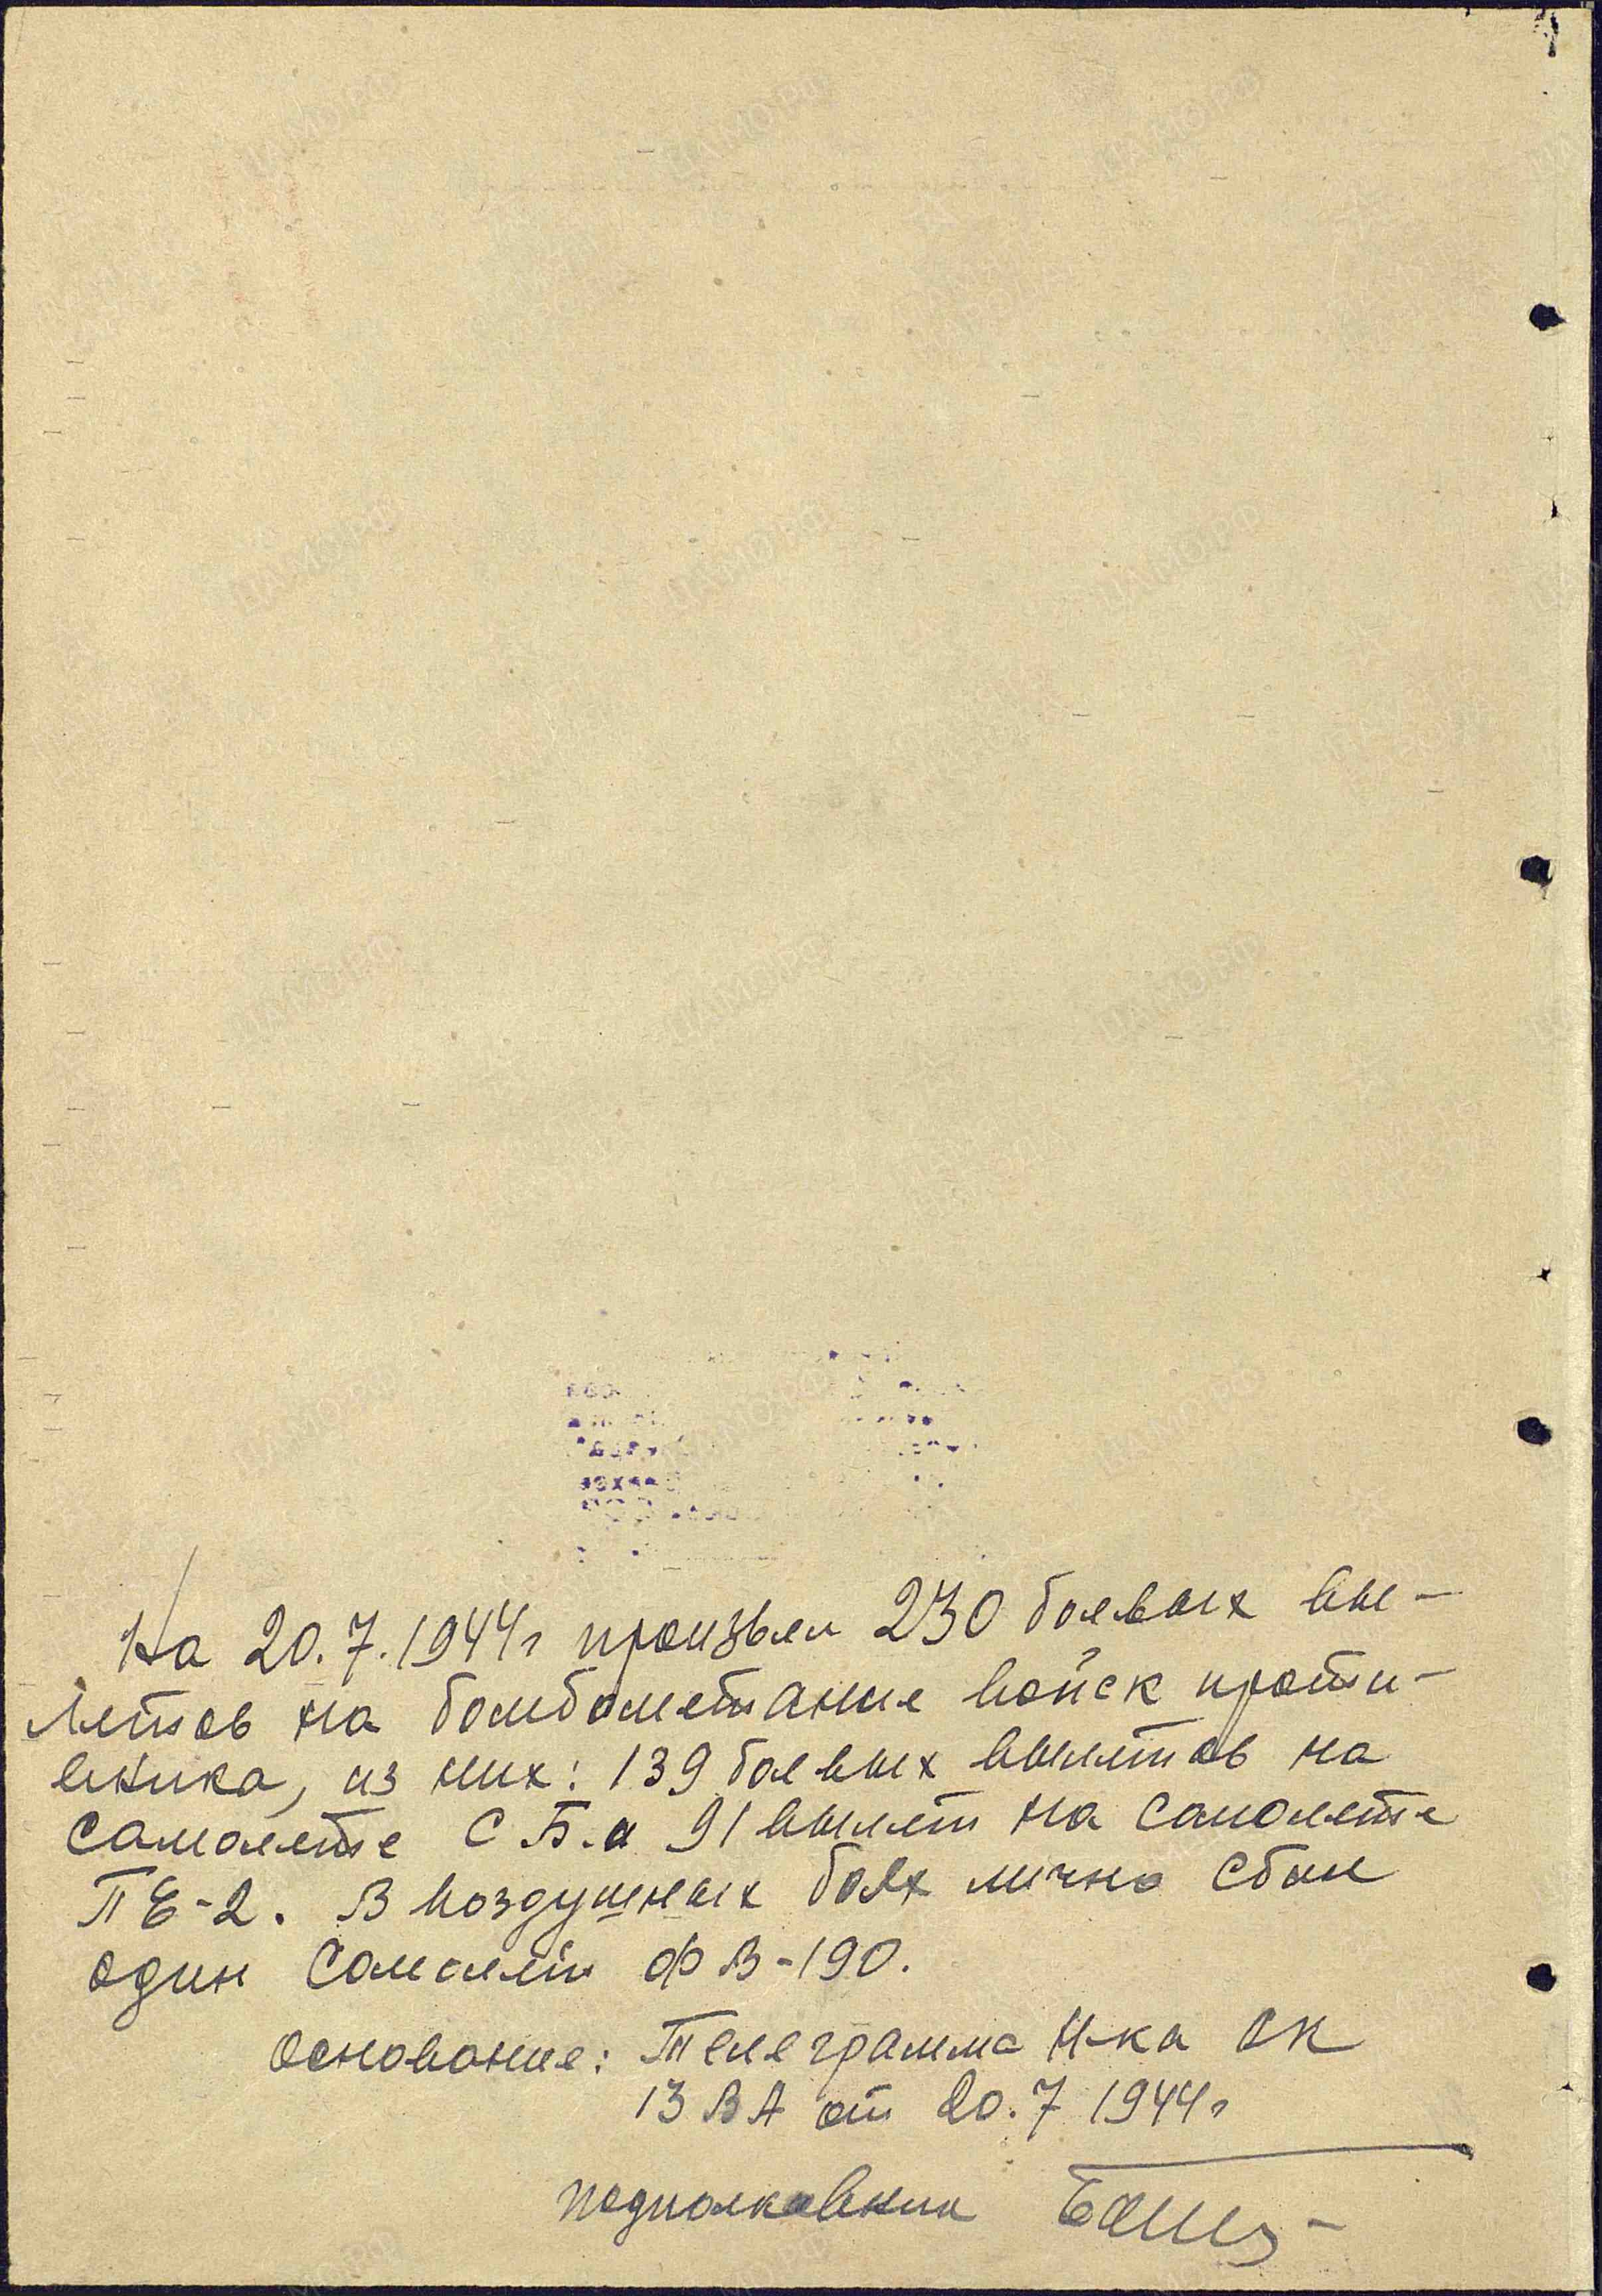 На 20.7.1944г произвел 230 боевых вы-
летов на бомбометание войск проти-
вника, из них: 139 боевых вылетов на
самолете СБ. и 91 вылет на самолете
ПЕ-2. В воздушных боях лично сбил
один самолет ФВ-190.
Основание: Телеграмма Н-ка ОК
13 ВА от 20.7 1944г
подполковник